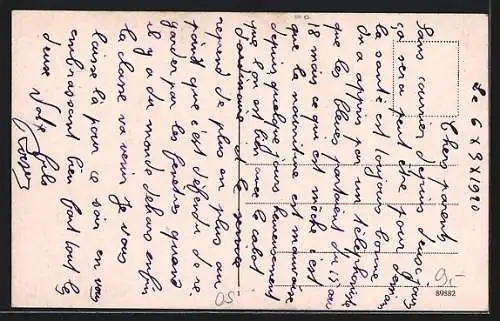 Le 6 X 9 X 1920
Chers parents
Sans courrier depuis deux jours
ça sera peut être pour demain
la santé est toujours bonne
on a appris par un téléphoniste
que les élèves partaient du 15 au
18 mois ce qui est moche c'est
que la nourriture est mauvaise
depuis quelques jours heureusement
que l'on est bien avec le cabot
d'ordinaire et le service
reprend de plus en plus au
point que c'est défendu de re
garder par les fenêtres quand
il y a du monde dehors enfin
la classe va venir Je vous
laisse là pour ce soir en vous
embrassant bien fort tout les
deux Votre fils
Roger
9.-
89882
05